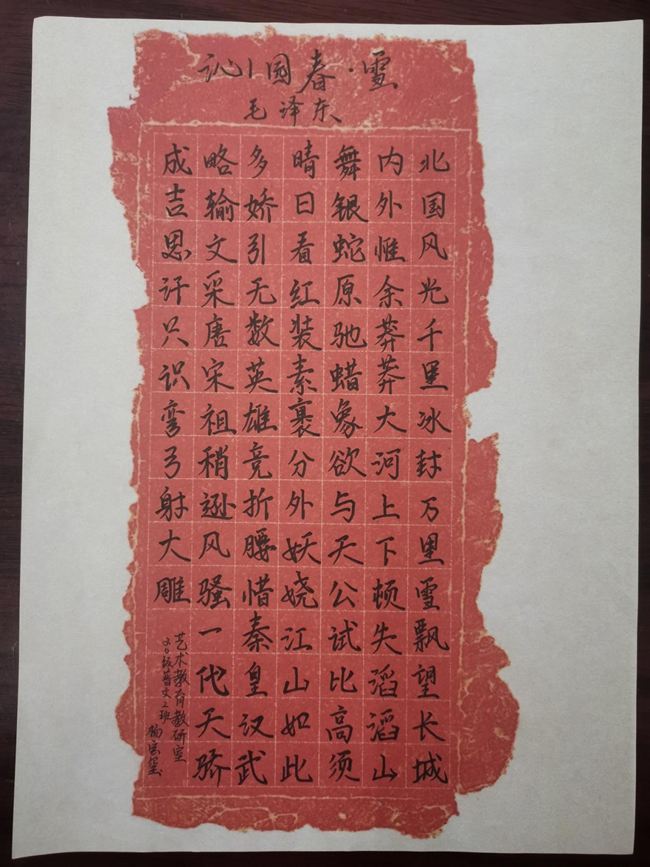 沁园春·雪
毛泽东
北国风光千里冰封万里雪飘望长城
内外惟余莽莽大河上下顿失滔滔山
舞银蛇原驰蜡象欲与天公试比高须
晴日看红装素裹分外妖娆江山如此
多娇引无数英雄竞折腰惜秦皇汉武
略输文采唐宋祖稍逊风骚一代天骄
成吉思汗只识弯弓射大雕
艺术教育教研室
20级普文2班